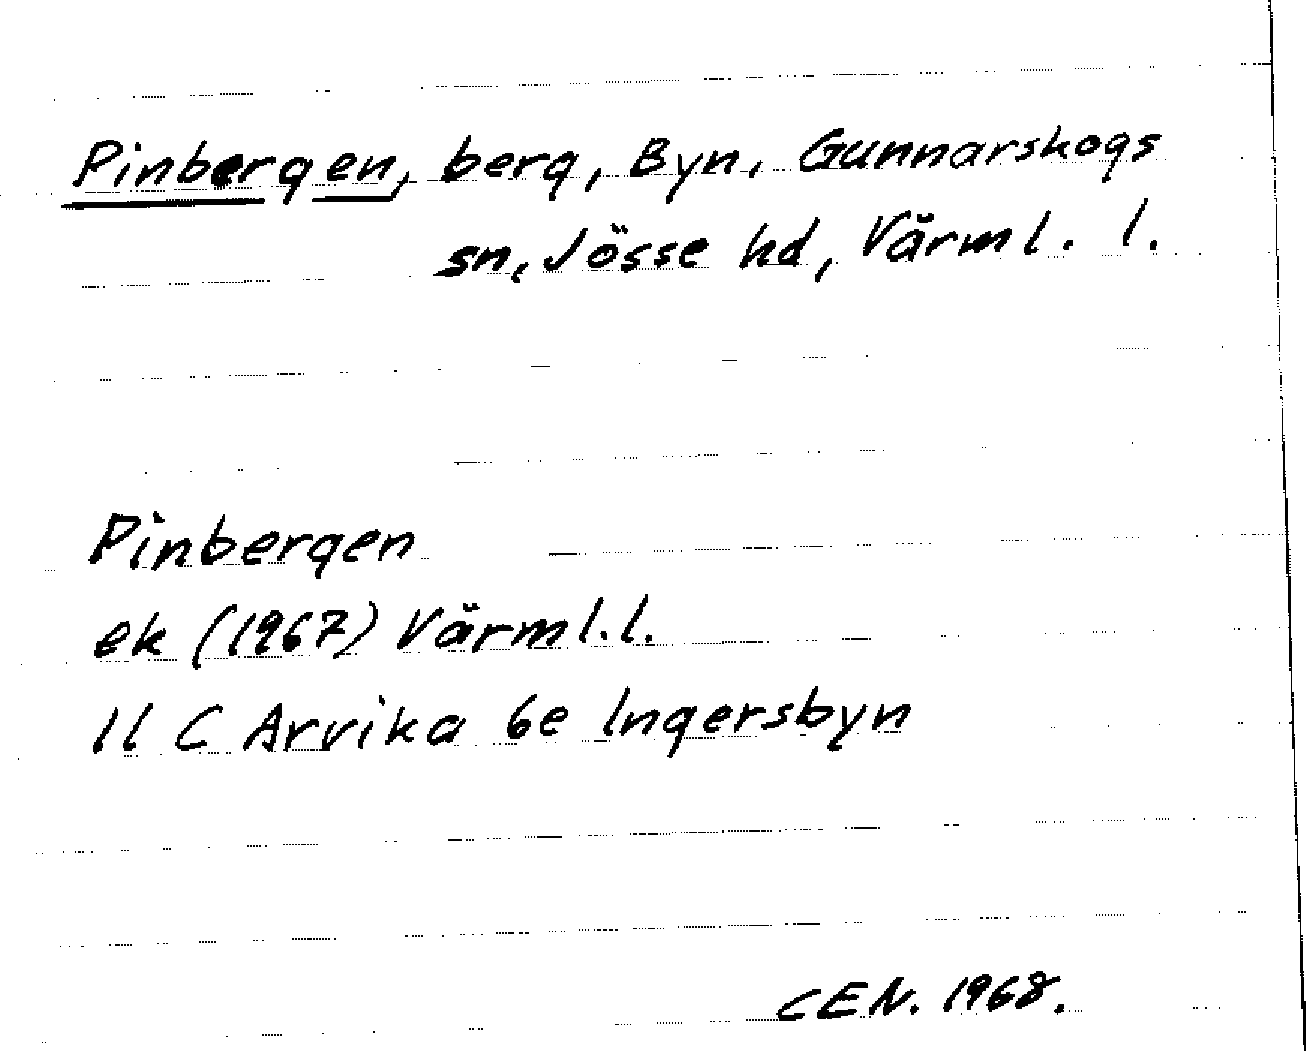 Pinbergen, berg, Byn, Gunnarskogs
sn, Jösse hd, Värml. l.
Pinbergen
ek (1967) Värml.l.
11 C Arvika 6e Ingersbyn
CEN. 1968.